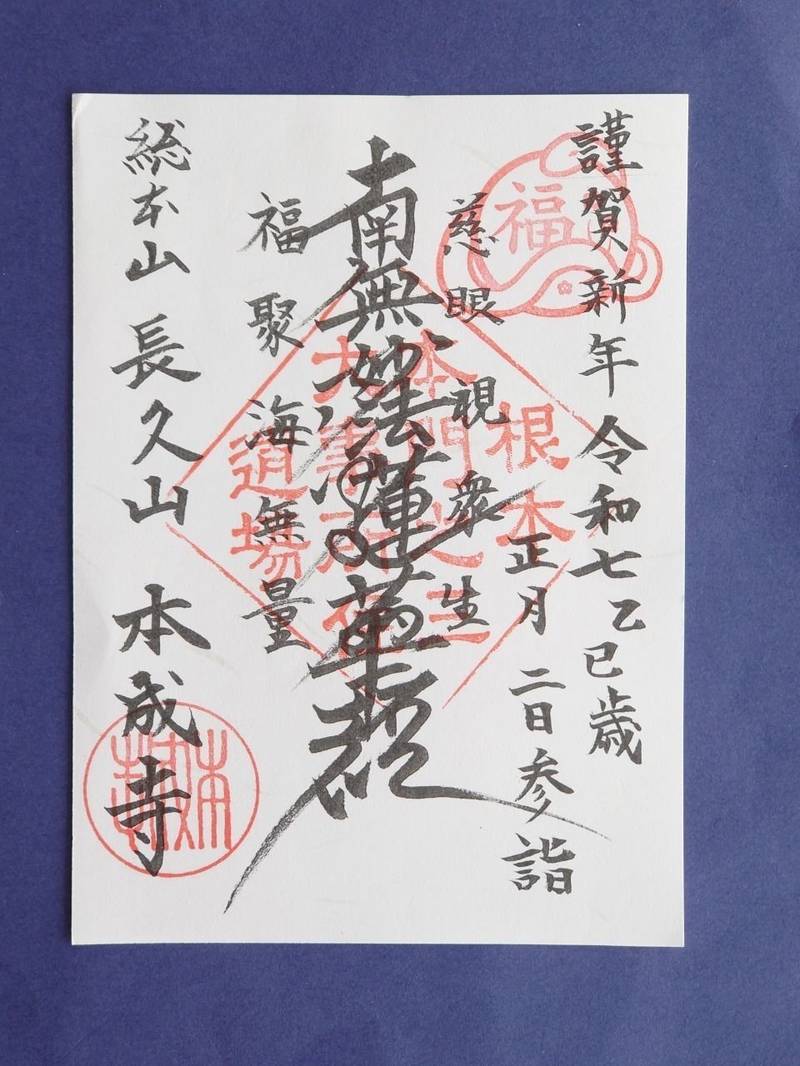 謹賀新年 令和七乙巳歳
正月二日参詣
慈眼視衆生
南無妙法蓮華経
福聚海無量
総本山 長久山 本成寺
福
根本
本門之三
大事所在
道場